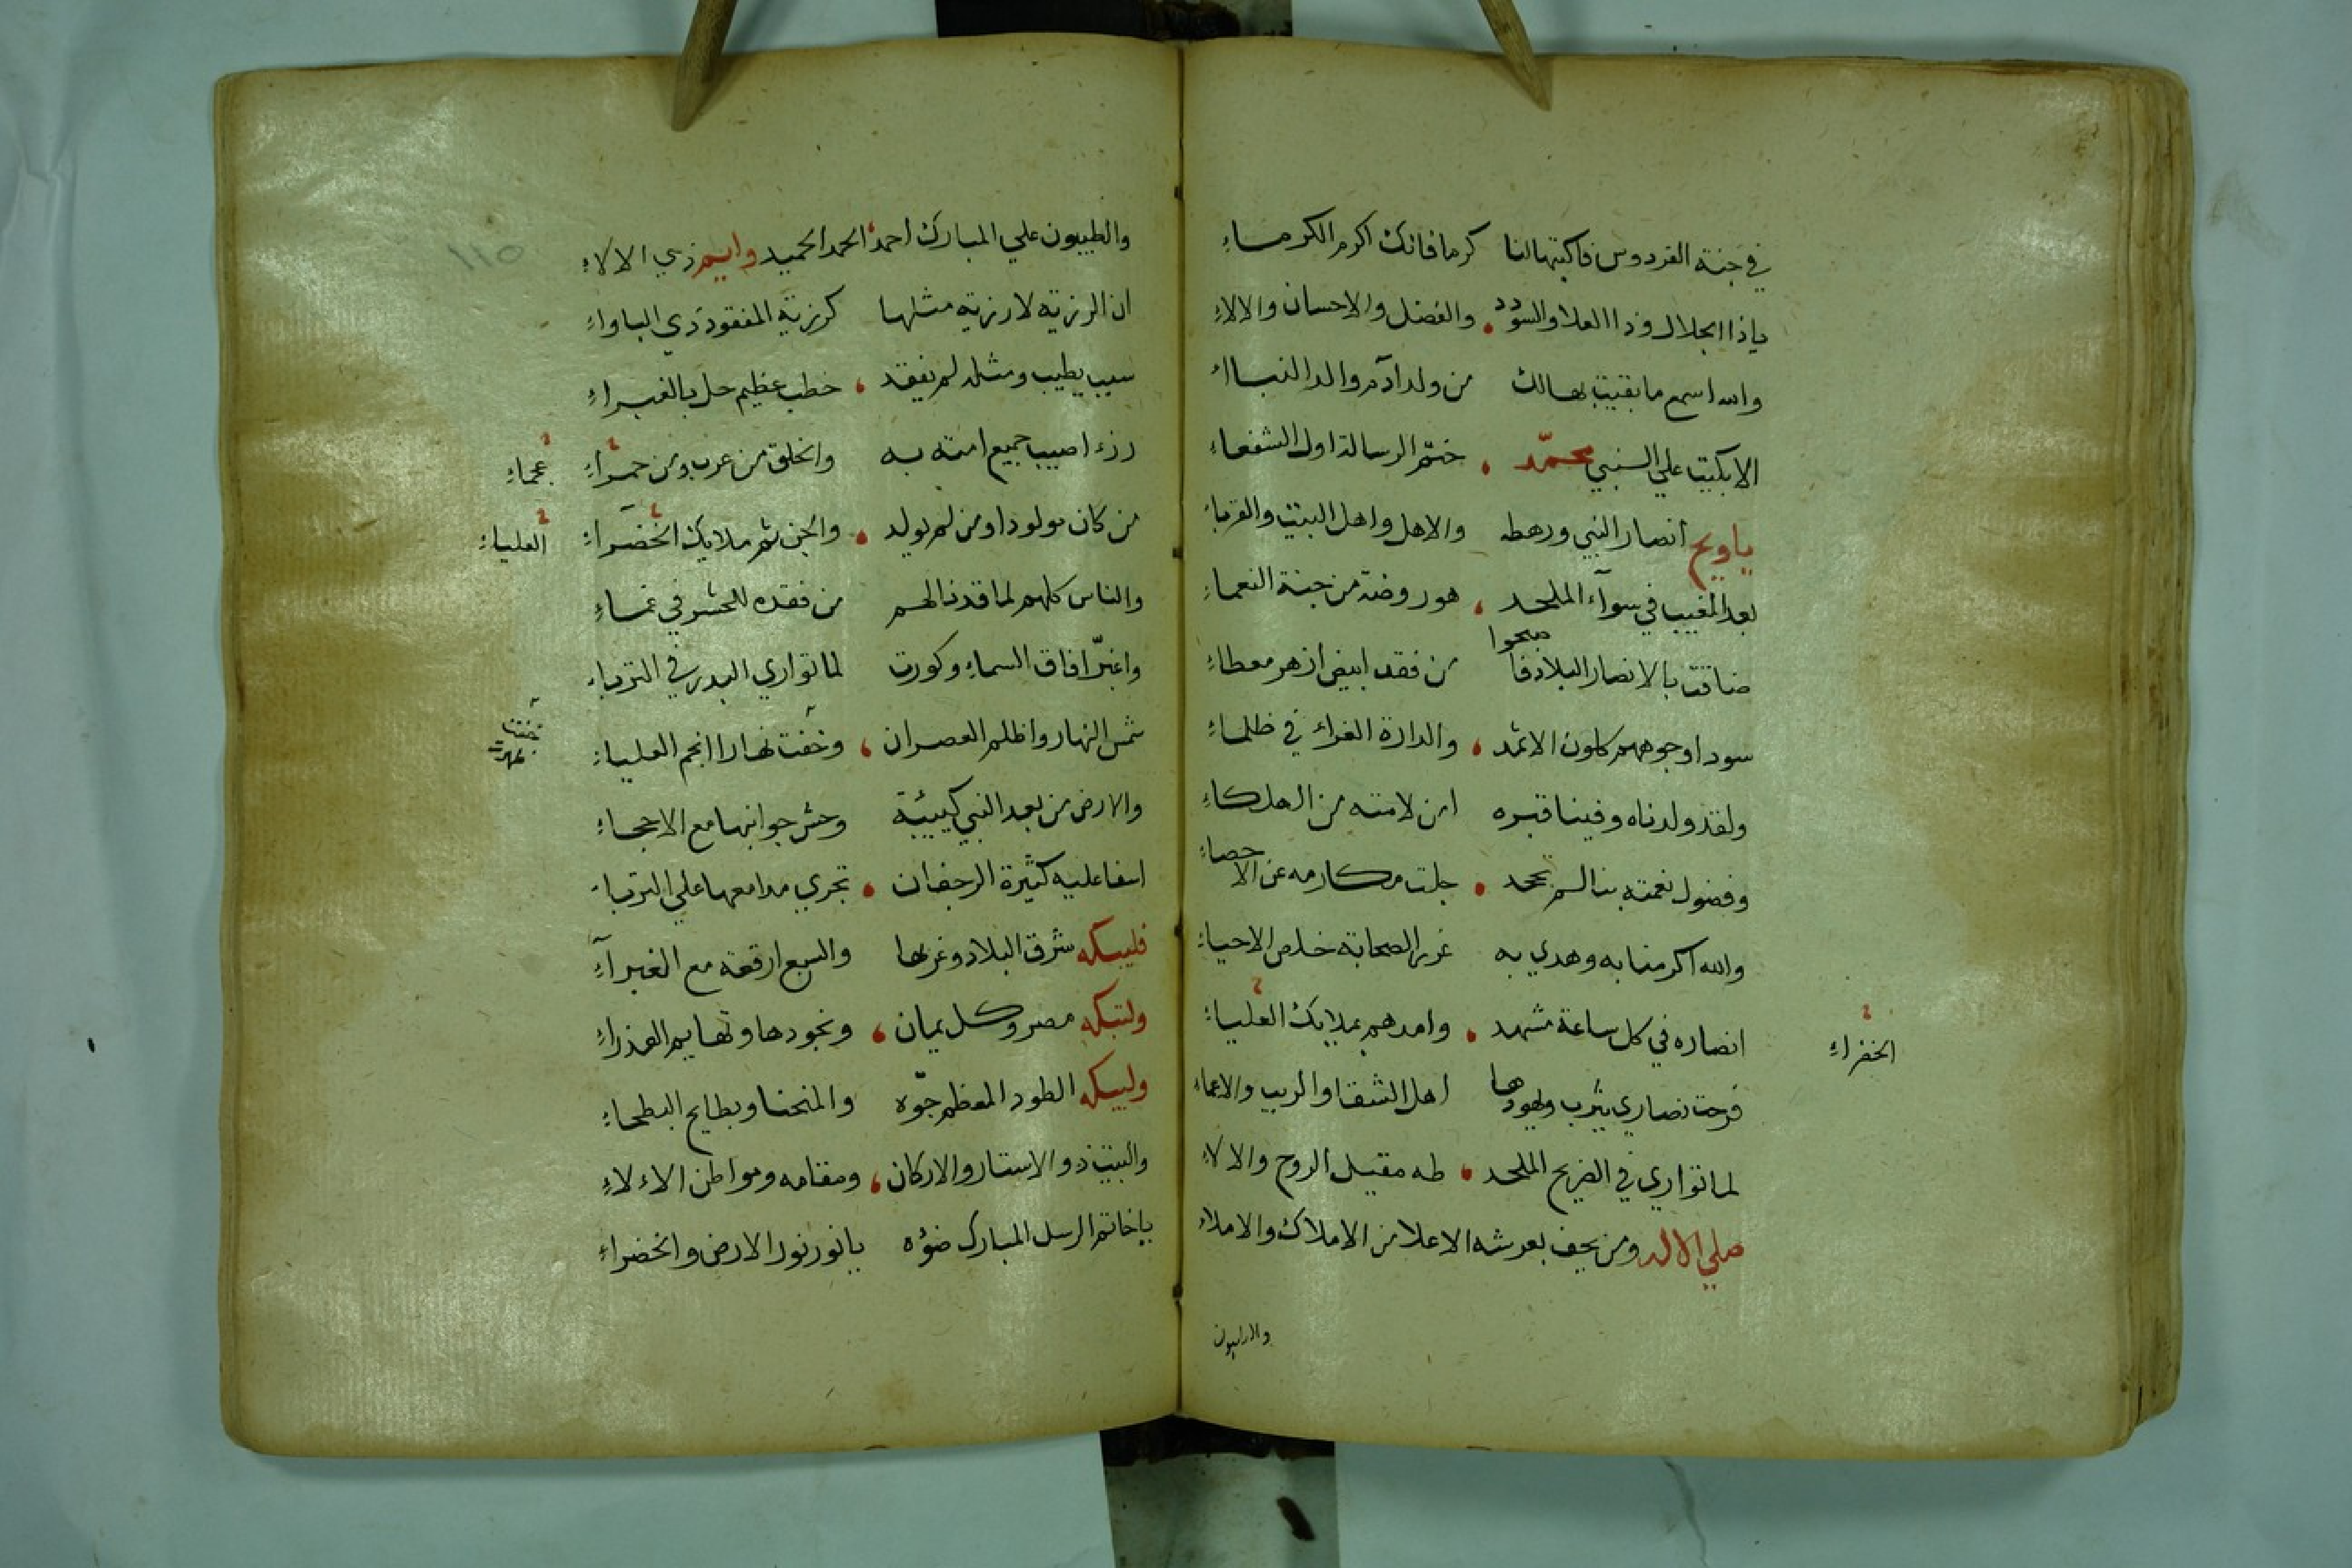 في جنة الفردوس فاكتبها لنا كرما فانك اكرم الكرماء
ياذا الجلال وذا العلا والسودد والفضل والاحسان والالاء
والله اسمع ما بقيت بهالك من ولد آدم والد النباا
الا بكيت علي النبي محمد ختم الرسالة اول الشفعاء
ياويح أنصار النبي ورهطه والاهل واهل البيت والقرباء
بعد المغيب في سوآء الملحد هو روضة من جنة النعماء
ضاقت بالانصار البلاد فاصبحوا من فقد ابيض ازهر معطاء
سودا وجوههم كلون الاثمد والدارة الغراء في ظلماء
ولقد ولدناه وفينا قبره امن لامته من الهلكاء
وفضول نعمته بنا لم تجحد جلت مكارمه عن الاحصاء
والله اكرمنا به وهدي به غرر الصحابة خلص الاحياء
انصاره في كل ساعة مشهد وامدهم بملايك العلياء
الخضراء
فرحت نصاري يثرب ويهودها اهل الشقا والريب والاعماء
لما تواري في الضريح الملحد طه مقيل الروح والالاء
صلي الاله ومن يحف بعرشه الاعلا من الاملاك والاملاء
والطيبون
والطيبون علي المبارك احمد الحمد الحميد واسم ذي الالاء
ان الرزية لا رزية مثلها كرزية المفقود ذي الباواء
سيب يطيب ومثله لم يفقد خطب عظيم حل بالغبراء
رزء اصيب جميع امته به والخلق من عرب ومن حمراء
عجماء
من كان مولودا ومن لم يولد والجن ثم ملايك الخضراء
العلياء
والناس كلهم لما قد نالهم من فقده للحشر في غماء
واغبر افاق السماء وكورت لما تواري البدر في التربا
شمس النهار واظلم العصران وخفت نهارا انجم العلياء
والارض من بعد النبي كييبة وحش جوانبها مع الارجاء
اسفا عليه كثيرة الرجفان تجري مدامعها علي التربا
فليبكه شرق البلاد وغربها والسبع ارقعة مع الغبرآء
ولتبكه مصر وكل يمان ونجودها وتهايم العذراء
وليبكه الطود المعظم جوه والمنحنا وبطايح البطحاء
والبيت ذو الاستار والاركان ومقامه ومواطن الاءلاء
ياخاتم الرسل المبارك ضوه يانور نور الارض والخضراء
١١٥